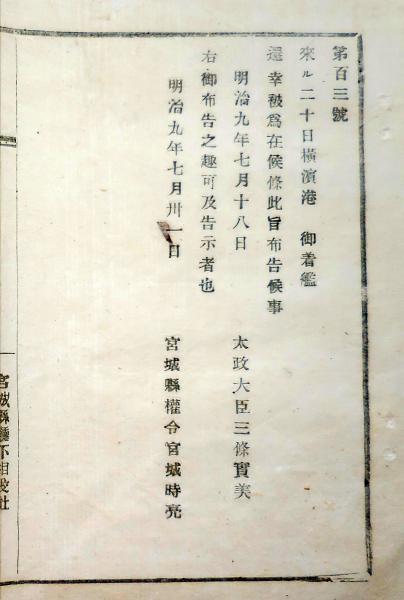 第百三號
來ル二十日橫濱港　御着艦
還幸被爲在候條此旨布告候事
明治九年七月十八日　太政大臣三條實美
右御布告之趣可及告示者也
明治九年七月卅一日　宮城縣權令宮城時亮
宮城縣